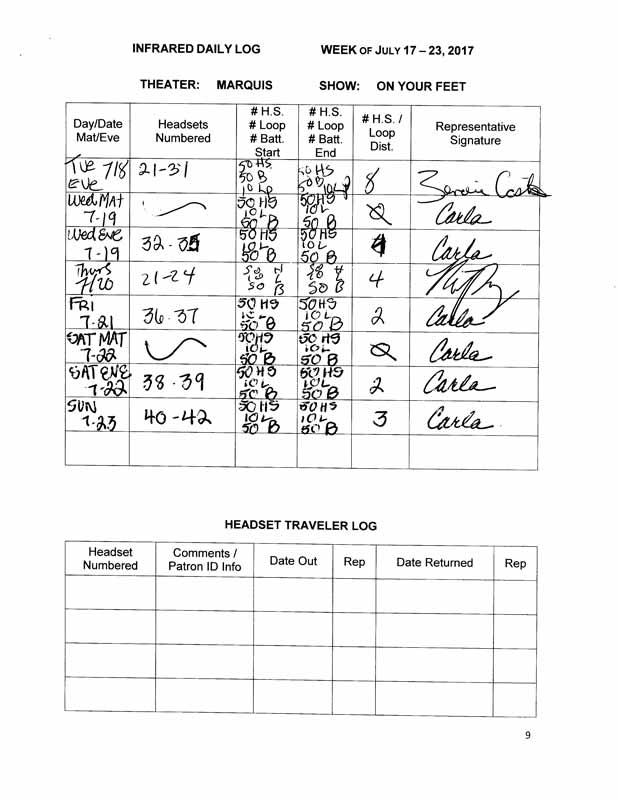 INFRARED DAILY LOG WEEK OF JULY 17 – 23, 2017
THEATER: MARQUIS SHOW: ON YOUR FEET
Day/Date Mat/Eve Headsets Numbered # H.S. # Loop # Batt. Start # H.S. # Loop # Batt. End # H.S. / Loop Dist. Representative Signature
Tue 7/8 Eve 21-31 50 HS 50 B 10 Lp 50 HS 50 B 10 Lp 8
Wed Mat 7-19 50 HS 10 L 50 B 50 HS 10 L 50 B 0 Carla
Wed Eve 7-19 32-35 50 HS 10 L 50 B 50 HS 10 L 50 B 4 Carla
Thurs 7/20 21-24 50 B 50 B 4
FRI 7-21 36-37 50 HS 10 L 50 B 50 HS 10 L 50 B 2 Carla
SAT MAT 7-22 50 HS 10 L 50 B 50 HS 10 L 50 B 0 Carla
SAT EVE 7-22 38-39 50 HS 10 L 50 B 50 HS 10 L 50 B 2 Carla
SUN 7-23 40-42 50 HS 10 L 50 B 50 HS 10 L 50 B 3 Carla
HEADSET TRAVELER LOG
Headset Numbered Comments / Patron ID Info Date Out Rep Date Returned Rep
9